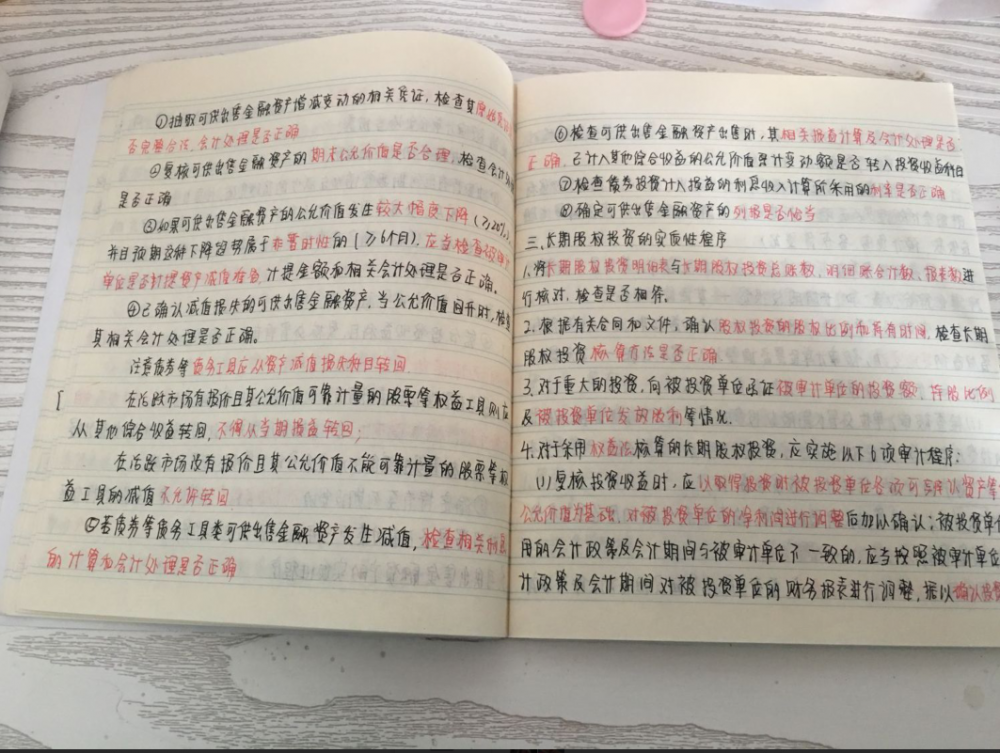 ①抽取可供出售金融资产增减变动的相关凭证,检查其原始凭证
否完整合法,会计处理是否正确
②复核可供出售金融资产的期末公允价值是否合理,检查会计处
是否正确
③如果可供出售金融资产的公允价值发生较大幅度下降(≥20%),
并且预期这种下降趋势属于非暂时性的(≥6个月),应当检查被审计
单位是否计提资产减值准备,计提金额和相关会计处理是否正确。
④已确认减值损失的可供出售金融资产,当公允价值回升时,检查
其相关会计处理是否正确。
注意债券等债务工具应从资产减值损失科目转回
[ 在活跃市场有报价且其公允价值可靠计量的股票等权益工具则应
从其他综合收益转回,不得从当期损益转回;
在活跃市场没有报价且其公允价值不能可靠计量的股票等权
益工具的减值不允许转回
⑤若债券等债务工具类可供出售金融资产发生减值,检查相关利息
的计算和会计处理是否正确
⑥检查可供出售金融资产出售时,其相关损益计算及会计处理是否
正确,已计入其他综合收益的公允价值累计变动额是否转入投资收益科目
⑦检查债券投资计入损益的利息收入计算所采用的利率是否正确
⑧确定可供出售金融资产的列报是否恰当
三、长期股权投资的实质性程序
1、将长期股权投资明细表与长期股权投资总账数、明细账合计数、报表数进
行核对,检查是否相符。
2、根据有关合同和文件,确认股权投资的股权比例和持有时间,检查长期
股权投资核算方法是否正确
3、对于重大的投资,向被投资单位函证被审计单位的投资额、持股比例
及被投资单位发放股利等情况.
4、对于采用权益法核算的长期股权投资,应实施以下6项审计程序:
(1)复核投资收益时,应以取得投资时被投资单位各项可辨认资产等
公允价值为基础,对被投资单位的净利润进行调整后加以确认;被投资单
用的会计政策及会计期间与被审计单位不一致的,应当按照被审计单位
计政策及会计期间对被投资单位的财务报表进行调整,据以确认投资